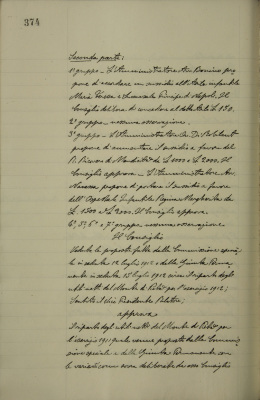 374
Seconda parte:
1º gruppo - L'Amministratore Avv. Bonino pro=
pone di accordare un sussidio all'Asilo infantile
Maria Teresa e Principi di Napoli. Il
Consiglio delibera di concedere al detto Asilo L. 150.
2º gruppo - nessuna osservazione.
3º gruppo - L'Amministratore Cav. Di
propone di aumentare il sussidio a favore del
R. Ricovero di Mendicità da L. 1000 a L. 2000. Il
Consiglio approva. - L'Amministratore Avv.
propone di portare il sussidio a favore
dell'Ospedale Infantile Regina Margherita da
L. 1500 a L. 2000. Il Consiglio approva.
4º, 5º, 6º e 7º gruppo nessuna osservazione.
Il Consiglio
Vedute le proposte fatte dalla Commissione speciale
in seduta 12 luglio 1912 e dalla Giunta Perma=
nente in seduta 15 luglio 1912 circa il riparto degli
utili netti del Monte di Pietà per l'esercizio 1912;
Sentito il Sig. Presidente Relatore;
approva
il riparto degli utili netti del Monte di Pietà per
l'esercizio 1911 quale venne proposto dalla Commis=
sione speciale e dalla Giunta Permanente con
le variazioni come sovra deliberate da esso Consiglio